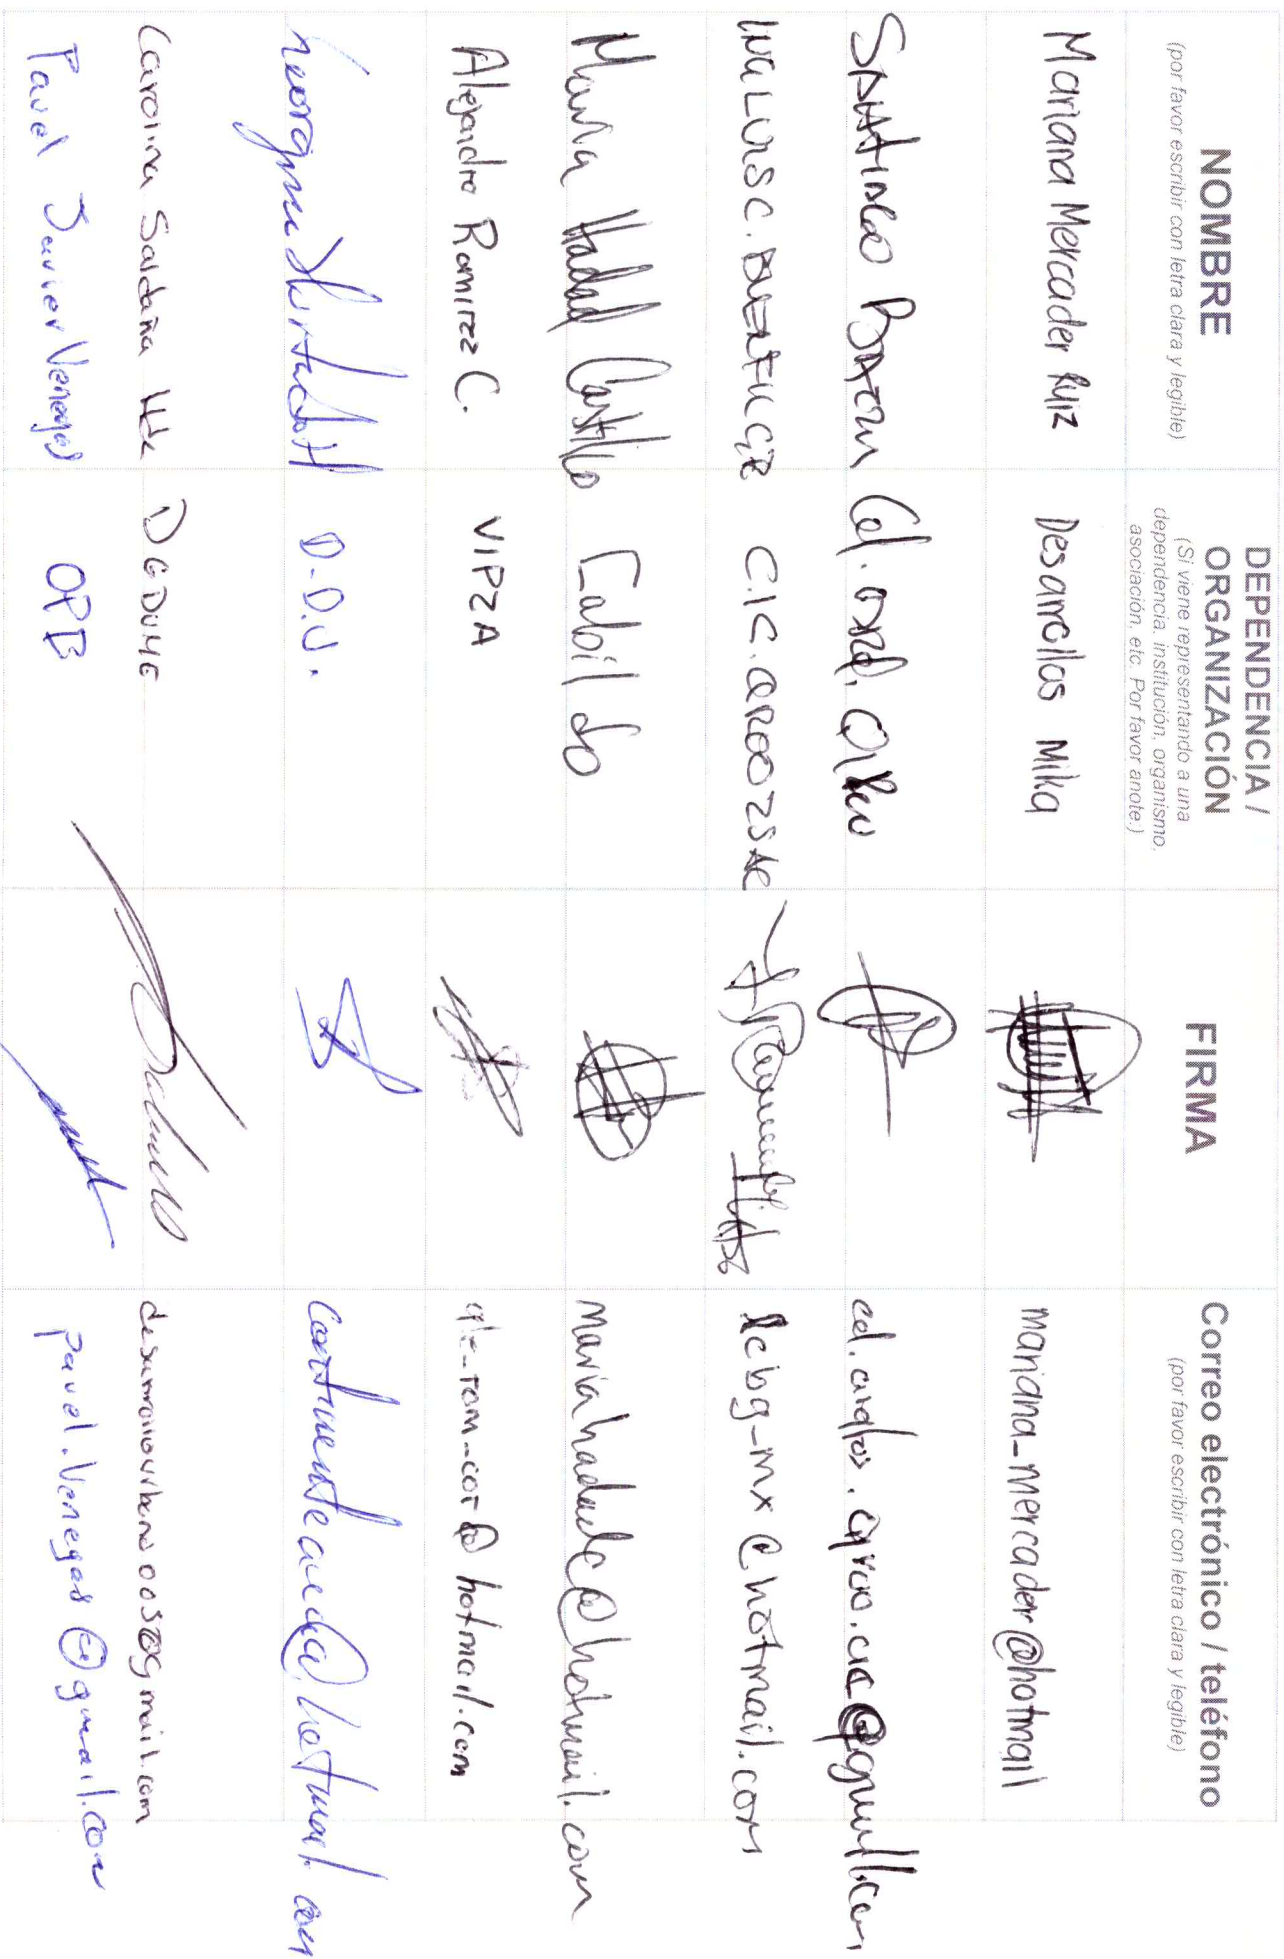 NOMBRE
(por favor escribir con letra clara y legible)
DEPENDENCIA /
ORGANIZACIÓN
(Si viene representando a una
dependencia, institución, organismo,
asociación, etc. Por favor anote.)
FIRMA
Correo electrónico / teléfono
(por favor escribir con letra clara y legible)
Mariana Mercader Ruiz Desarrollos Mika mariana_mercader@hotmail
Col.
ING LUIS C. C.I.C. lcbg_mx@hotmail.com
Maria Hadad Castillo Cabildo mariahadadc@hotmail.com
Alejandro Ramirez C. VIPZA ale_ram_cor@hotmail.com
D.D.U. @hotmail.com
Carolina Saldaña DGDUME desarrollourbano005@gmail.com
Pavel Javier Venegas OPB pavel.venegas@gmail.com